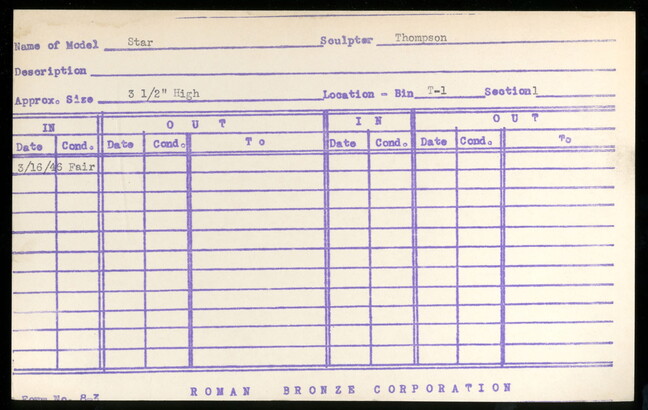 Name of Model Star Sculptor Thompson
Description
Approx. Size 3 1/2" High Location - Bin T-1 Section 1
IN OUT IN OUT
Date Cond. Date Cond. To Date Cond. Date Cond. To
3/16/46 Fair
Form No. 8-3
ROMAN BRONZE CORPORATION